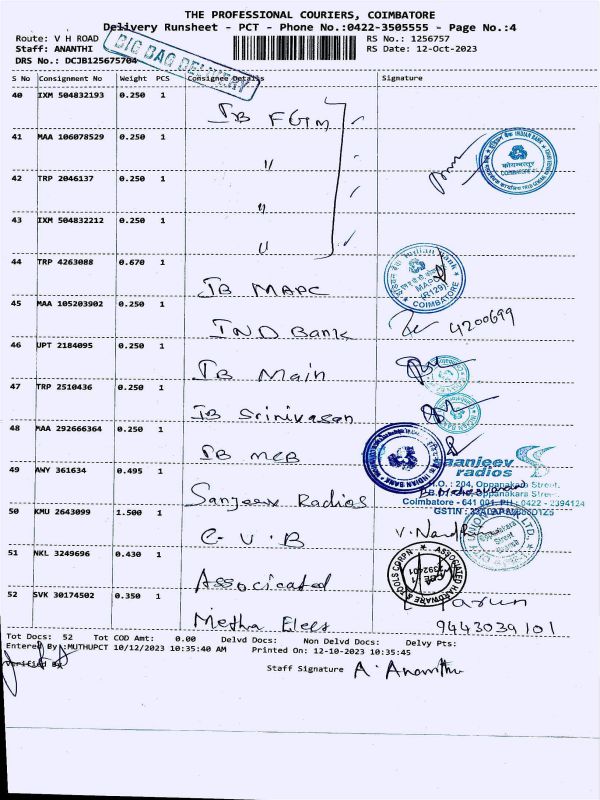 THE PROFESSIONAL COURIERS, COIMBATORE
Delivery Runsheet - PCT - Phone No.:0422-3505555 - Page No.:4
Route: V H ROAD
RS No.: 1256757
Staff: ANANTHI
RS Date: 12-Oct-2023
DRS No.: DCJB125675704
BIG BAG DELIVERY
S No Consignment No Weight PCS Consignee Details Signature
40 IXM 504832193 0.250 1
IB FGTM
41 MAA 106078529 0.250 1
"
INDIAN BANK
COIMBATORE
42 TRP 2046137 0.250 1
"
43 IXM 504832212 0.250 1
"
44 TRP 4263088 0.670 1
IB MAPC
Indian Bank
MAPC
(R129)
COIMBATORE
45 MAA 105203902 0.250 1
IND Bank
4200699
46 UPT 2184095 0.250 1
IB Main
47 TRP 2510436 0.250 1
IB Srinivasan
48 MAA 292666364 0.250 1
IB MCB
INDIAN BANK
49 ANY 361634 0.495 1
Sanjeev Radios
aanjeev
radios
H.O. : 204, Oppanakara Street.
Oppanakara Street
Coimbatore - 641 001. PH : 0422 - 2394124
GSTIN :
50 KMU 2643099 1.500 1
C.V.B
51 NKL 3249696 0.430 1
Associcated
ASSOCIATED HARDWARE & TOOLS CORPN
2392401
52 SVK 30174502 0.350 1
Metha Elecs
9443039101
Tot Docs: 52 Tot COD Amt: 0.00 Delvd Docs: Non Delvd Docs: Delvy Pts:
Entered By :MUTHUPCT 10/12/2023 10:35:40 AM Printed On: 12-10-2023 10:35:45
Verified By
Staff Signature A. Ananthi